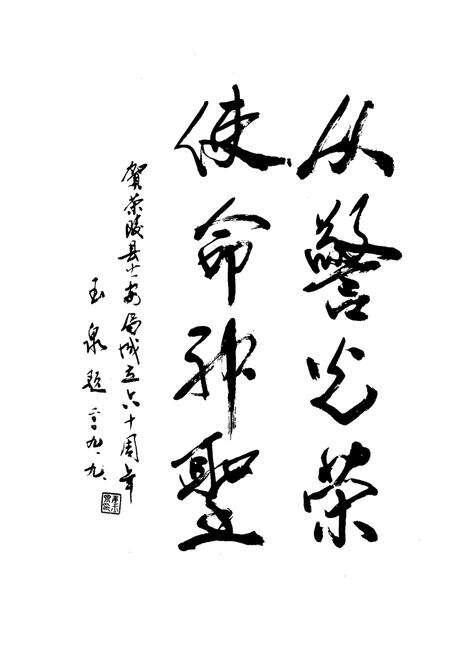 从警光荣
使命神聖
賀茶陵县公安局成立六十周年
玉泉题 二〇〇九.九.